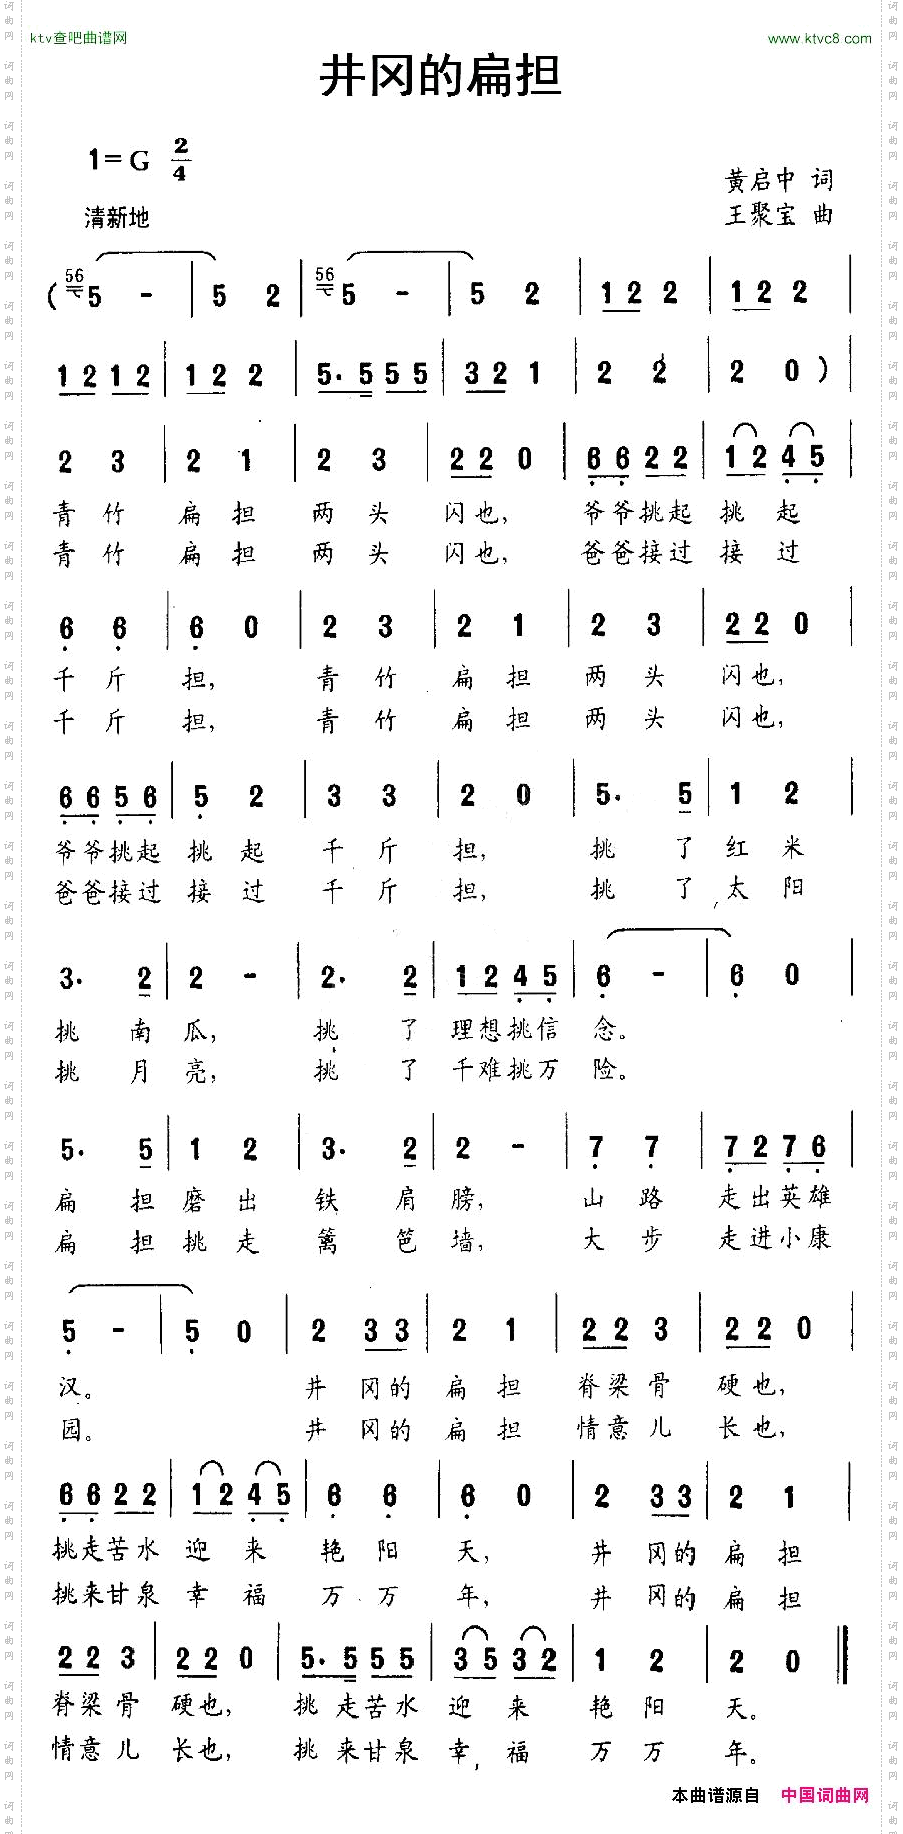 ktv查吧曲谱网
www.ktvc8.com
井冈的扁担
1=G 2/4
黄启中 词
清新地
王聚宝 曲
( 56 5 - | 5 2 | 56 5 - | 5 2 | 1 2 2 | 1 2 2 |
1 2 1 2 | 1 2 2 | 5. 5 5 5 | 3 2 1 | 2 2 | 2 0 ) |
2 3 | 2 1 | 2 3 | 2 2 0 | 6 6 2 2 | 1 2 4 5 |
青竹 扁担 两头 闪也, 爷爷挑起 挑起
青竹 扁担 两头 闪也, 爸爸接过 接过
6 6 | 6 0 | 2 3 | 2 1 | 2 3 | 2 2 0 |
千斤 担, 青竹 扁担 两头 闪也,
千斤 担, 青竹 扁担 两头 闪也,
6 6 5 6 | 5 2 | 3 3 | 2 0 | 5. 5 | 1 2 |
爷爷挑起 挑起 千斤 担, 挑了 红米
爸爸接过 接过 千斤 担, 挑了 太阳
3. 2 | 2 - | 2. 2 | 1 2 4 5 | 6 - | 6 0 |
挑南 瓜, 挑了 理想挑信 念。
挑月 亮, 挑了 千难挑万 险。
5. 5 | 1 2 | 3. 2 | 2 - | 7 7 | 7 2 7 6 |
扁担 磨出 铁肩 膀, 山路 走出英雄
扁担 挑走 篱笆 墙, 大步 走进小康
5 - | 5 0 | 2 3 3 | 2 1 | 2 2 3 | 2 2 0 |
汉。 井冈的 扁担 脊梁骨 硬也,
园。 井冈的 扁担 情意儿 长也,
6 6 2 2 | 1 2 4 5 | 6 6 | 6 0 | 2 3 3 | 2 1 |
挑走苦水 迎来 艳阳 天, 井冈的 扁担
挑来甘泉 幸福 万万 年, 井冈的 扁担
2 2 3 | 2 2 0 | 5. 5 5 5 | 3 5 3 2 | 1 2 | 2 0 ‖
脊梁骨 硬也, 挑走苦水 迎来 艳阳 天。
情意儿 长也, 挑来甘泉 幸福 万万 年。
本曲谱源自 中国词曲网